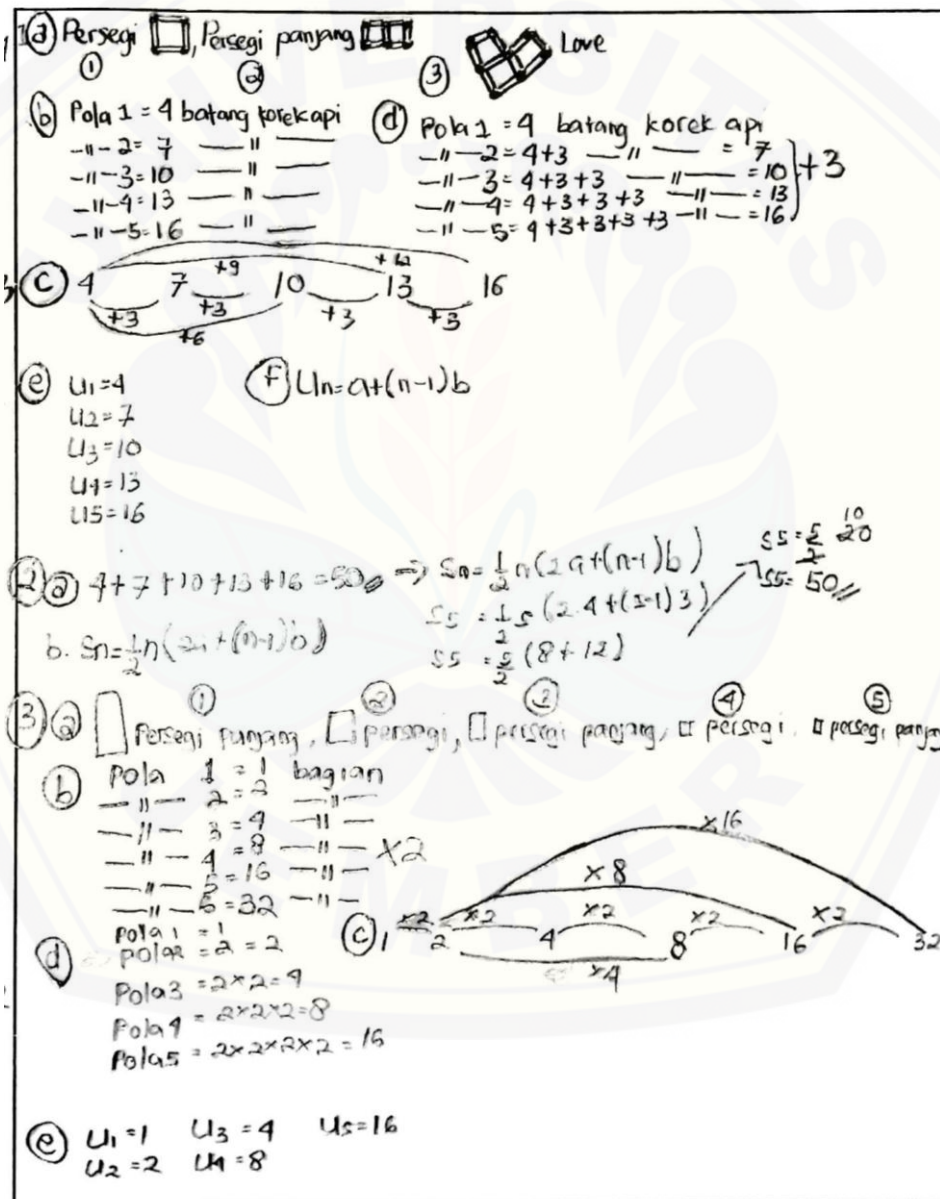 1 a Persegi , Persegi panjang Love
① ② ③
b Pola 1 = 4 batang korek api
-"- 2 = 7 —"—
-"- 3 = 10 —"—
-"- 4 = 13 —"—
-"- 5 = 16 —"—
d Pola 1 = 4 batang korek api
-"- 2 = 4+3 —"— = 7
-"- 3 = 4+3+3 —"— = 10
-"- 4 = 4+3+3+3 —"— = 13
-"- 5 = 4+3+3+3+3 —"— = 16
+3
+9 +12
c 4 7 10 13 16
+3 +3 +3 +3
+6
e U1 = 4
U2 = 7
U3 = 10
U4 = 13
U5 = 16
f Un = a+(n-1)b
2 a 4+7+10+13+16 = 50 ⇒ Sn = 1/2 n(2a+(n-1)b)
S5 = 1/2 5 (2.4+(5-1)3)
S5 = 5/2 (8+12)
S5 = 5/2 20 10
S5 = 50
b. Sn = 1/2 n(2a+(n-1)b)
① ② ③ ④ ⑤
3 a Persegi panjang, persegi, persegi panjang, persegi, persegi panjang
b Pola 1 = 1 bagian
—"— 2 = 2 —"—
—"— 3 = 4 —"—
—"— 4 = 8 —"—
—"— 5 = 16 —"—
—"— 6 = 32 —"—
x2
x16
x8
x2 x2 x2 x2 x2
c 1 2 4 8 16 32
x4
d Pola 1 = 1
Pola 2 = 2 = 2
Pola 3 = 2x2 = 4
Pola 4 = 2x2x2 = 8
Pola 5 = 2x2x2x2 = 16
e U1 = 1 U3 = 4 U5 = 16
U2 = 2 U4 = 8
UNIVERSITAS
JEMBER